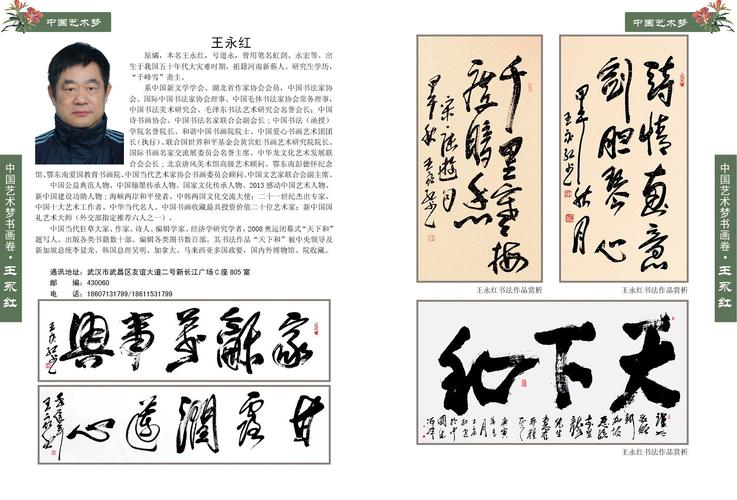 中国艺术梦
中国艺术梦书画卷·王永红
王永红
原燏，本名王永红，号道永，曾用笔名虹剑、永宏等。出
生于我国五十年代大灾难时期，祖籍河南新蔡人，研究生学历，
“千峰雪”斋主。
系中国新文学学会、湖北省作家协会会员，中国书法家协
会、国际中国书法家协会理事、中国毛体书法家协会常务理事，
中国书法美术研究会、毛泽东书法艺术研究会名誉会长；中国
诗书画协会、中国书法名家联合会副会长；中国书法（函授）
学院名誉院长、和谐中国书画院院士、中国爱心书画艺术团团
长(执行)、联合国世界和平基金会黄宾虹书画艺术研究院院长、
国际书画名家交流展委员会名誉主席、中华龙文化艺术发展联
合会会长；北京唐风美术馆高级艺术顾问、鄂东南彭德怀纪念
馆、鄂东南爱国教育书画院、中国当代艺术家协会书画委员会顾问、中国文艺家联合会副主席。
中国公益典范人物、中国翰墨传承人物、国家文化传承人物、2013感动中国艺术人物、
新中国建设功勋人物；海峡两岸和平使者、中韩两国文化交流大使；二十一世纪杰出专家、
中国十大艺术工作者、中华当代名人、中国书画收藏最具投资价值二十位艺术家；新中国国
礼艺术大师（外交部指定推荐六人之一）。
中国当代狂草大家、作家、诗人、编辑学家、经济学研究学者。2008奥运闭幕式“天下和”
题写人。出版各类书籍数十部。编辑各类图书数百部。其书法作品“天下和”被中央领导及
新加坡总统李显龙、韩国总理吴明、加拿大、马来西亚多国政要，国内外博物馆、院收藏。
通讯地址：武汉市武昌区友谊大道二号新长江广场C座805室
邮 编：430060
电 话：18607131799/18611531799
家和万事兴
甘露润道心
中国艺术梦
中国艺术梦书画卷·王永红
千里寒梅
度暗香
诗情画意
剑胆琴心
王永红书法作品赏析
王永红书法作品赏析
天下和
王永红书法作品赏析